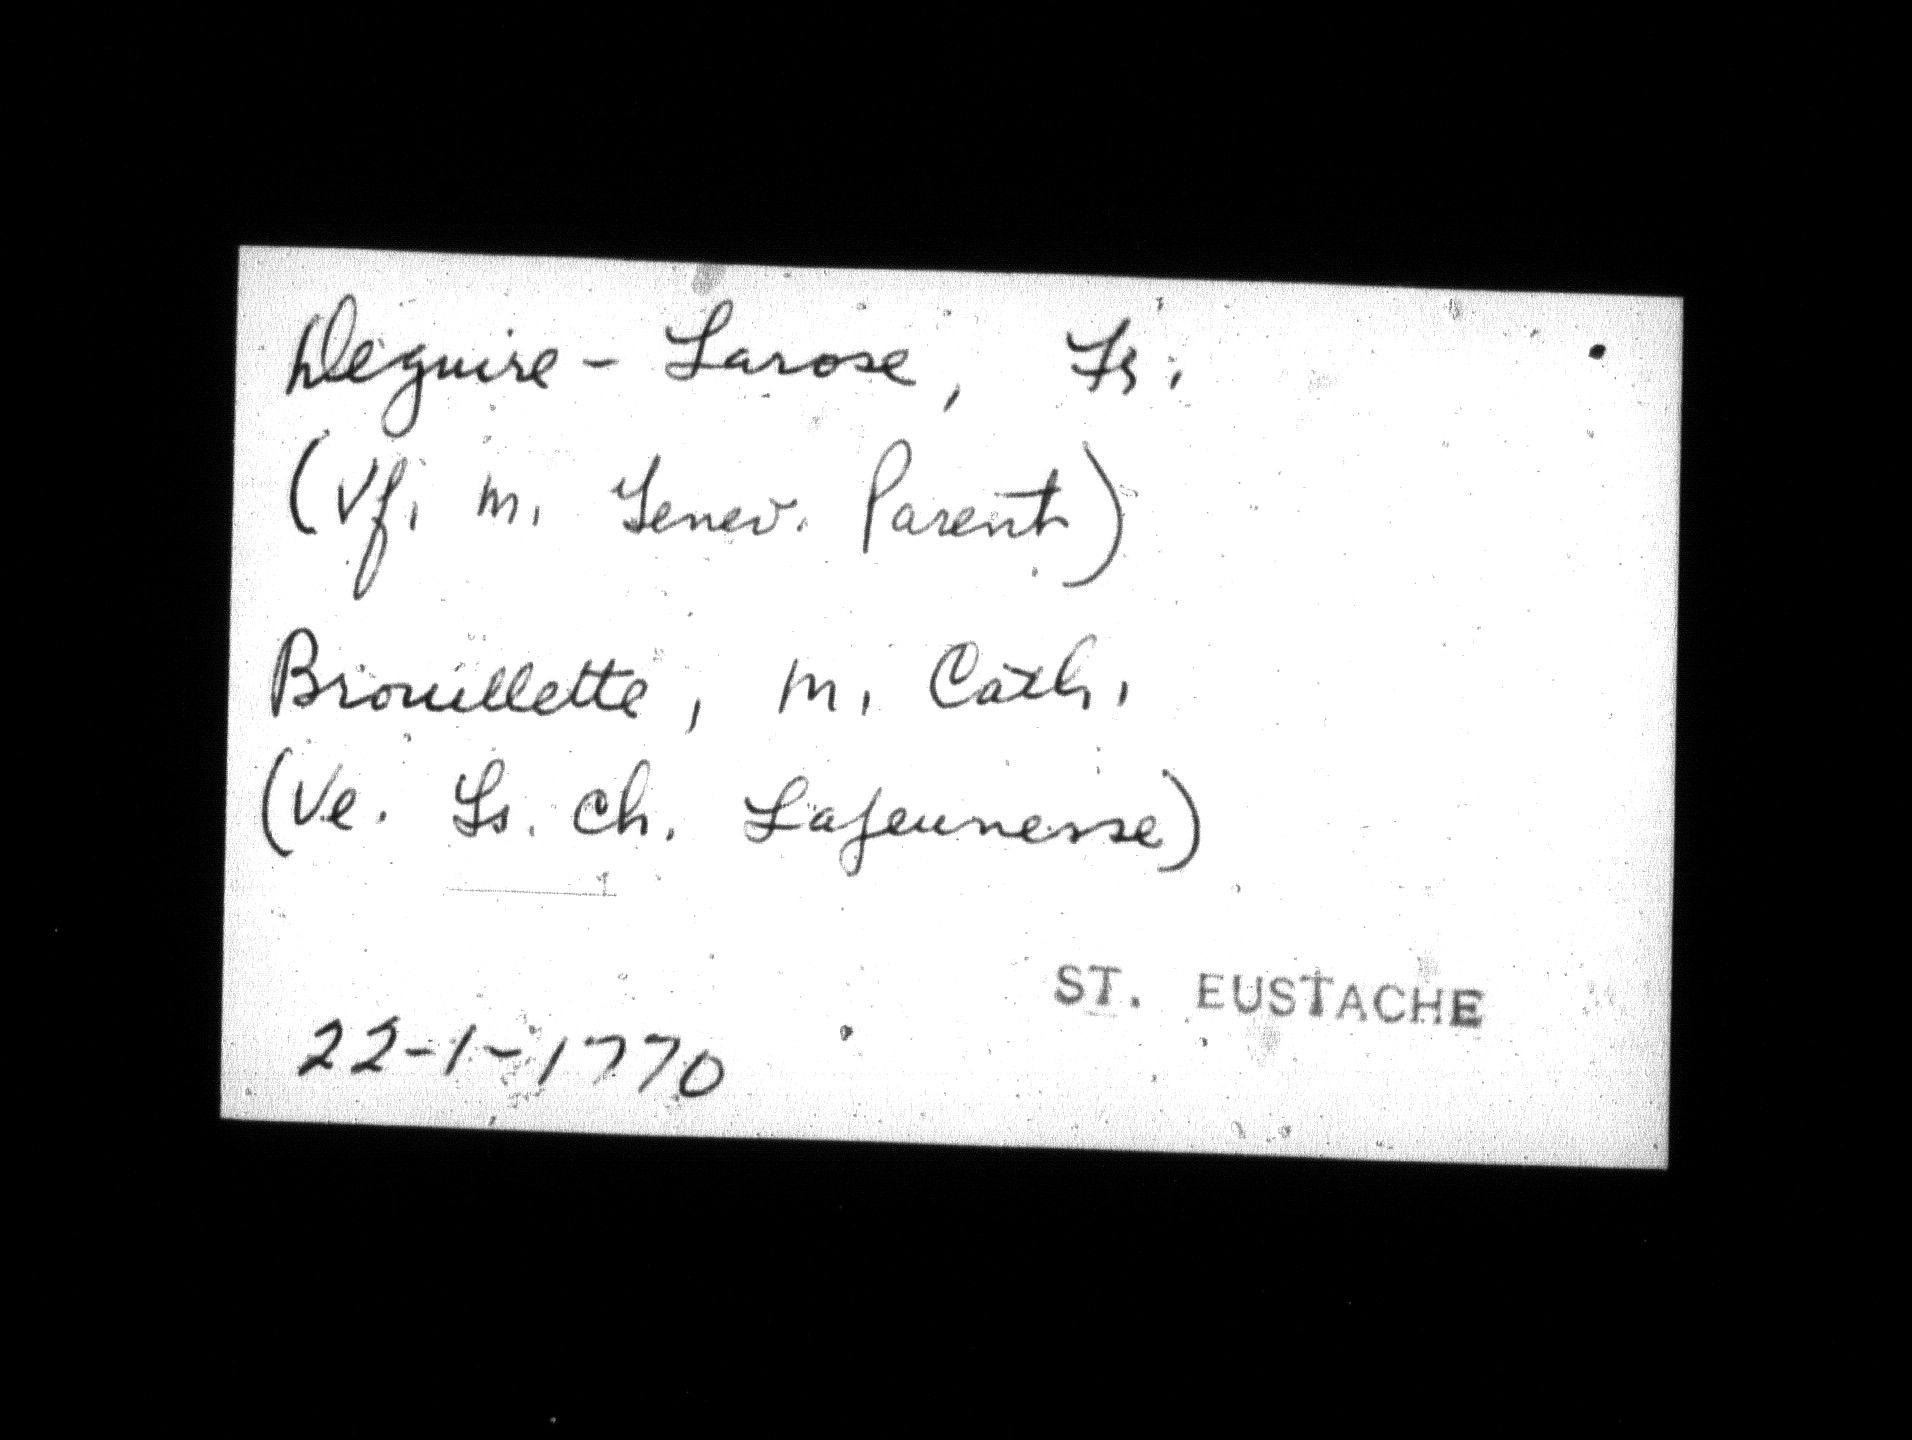 Deguire - Larose, Fr.
(Vf. m. Genev. Parent)
Brouillette, m. Cath.
(Ve. Ls. Ch. Lajeunesse)
ST. EUSTACHE
22-1-1770